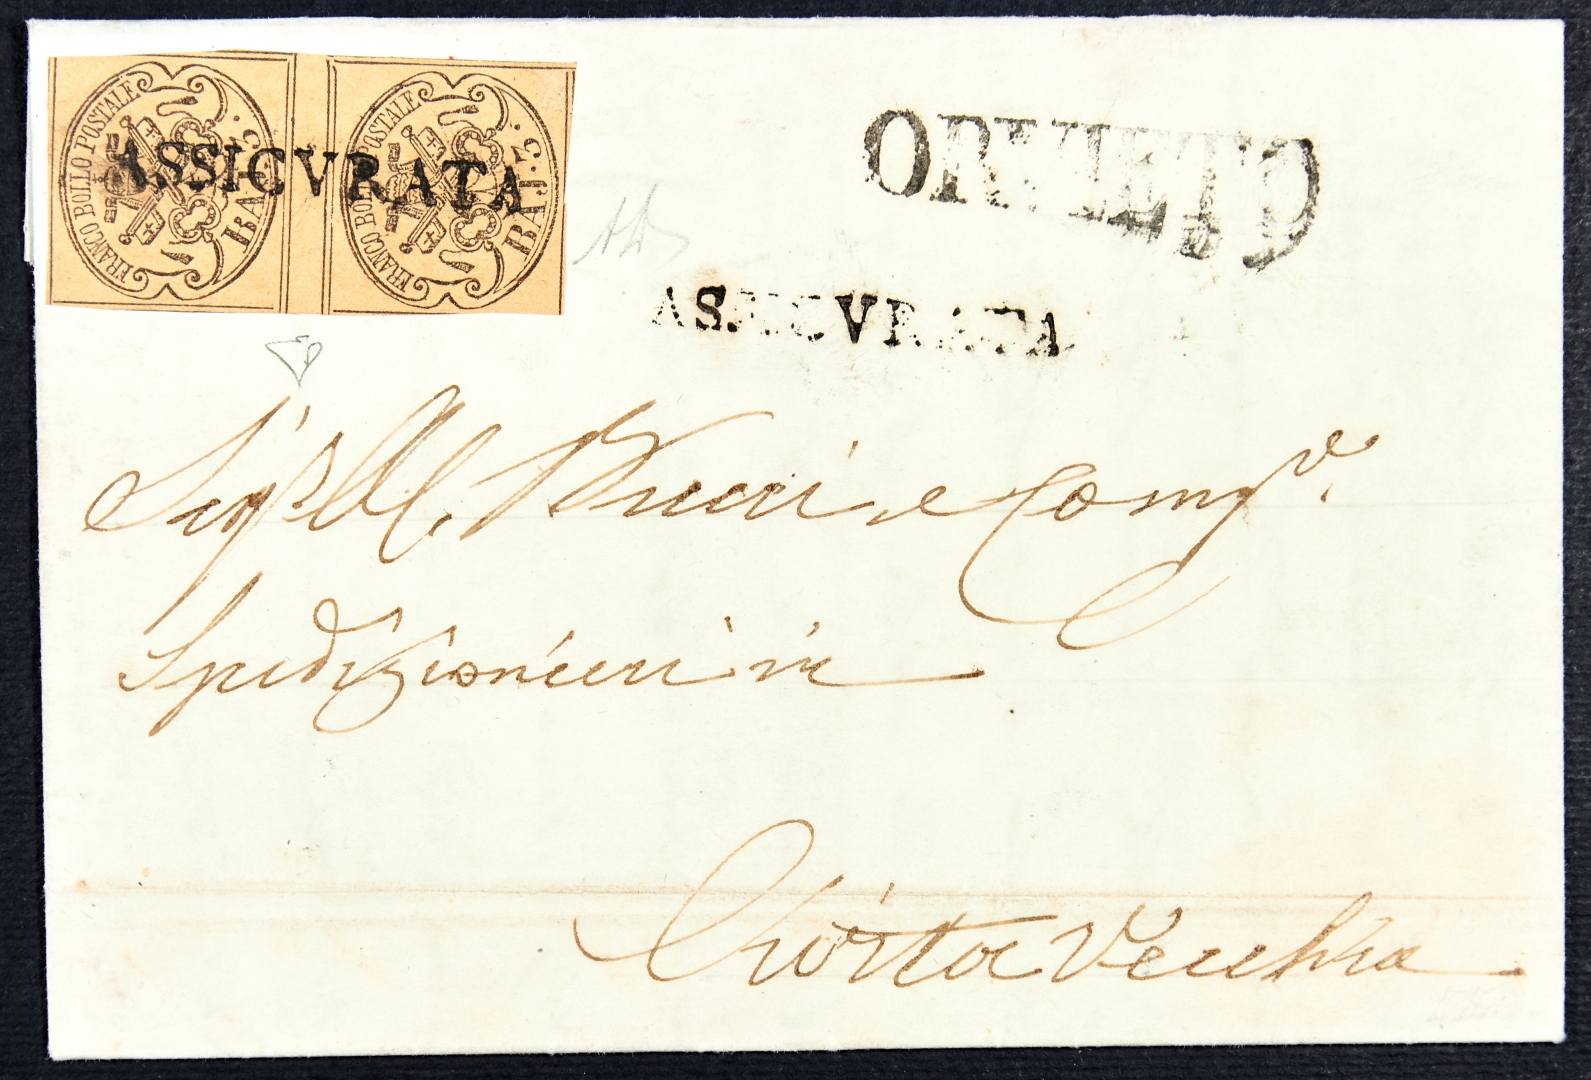 FRANCO BOLLO POSTALE BAJ. 3. FRANCO BOLLO POSTALE BAJ. 3.
ASSICVRATA
ORVIETO
ASSICVRATA
Sigri M. Bucci e Compi.
Spedizionieri in
Civita Vecchia